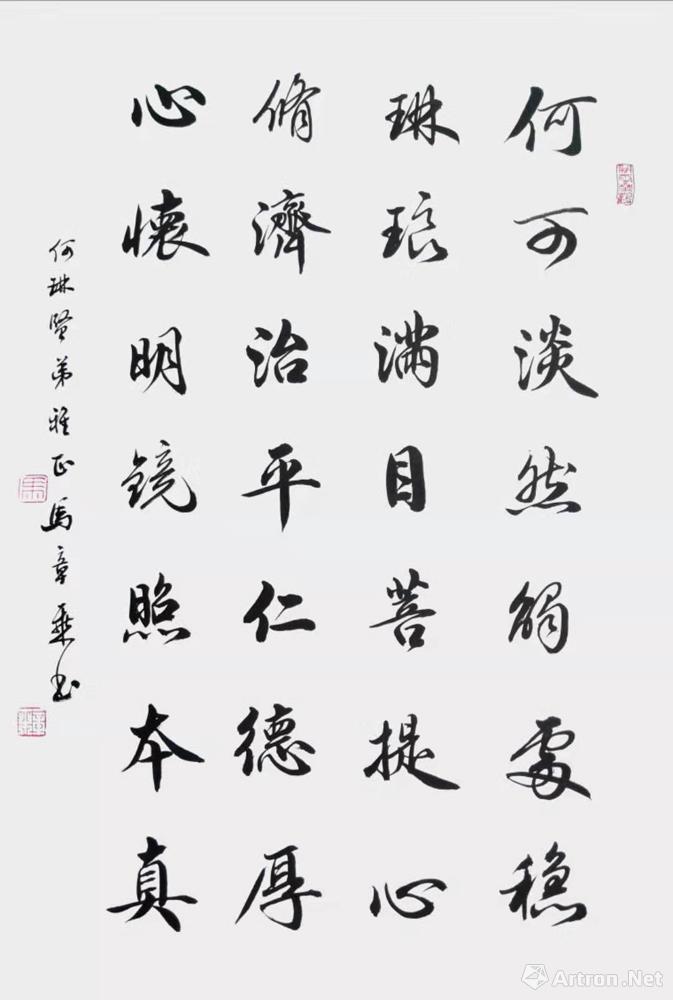 何可淡然觸處穩
琳琅滿目菩提心
脩濟治平仁德厚
心懷明鏡照本真
何琳賢弟雅正馬章乘书
Artron.Net